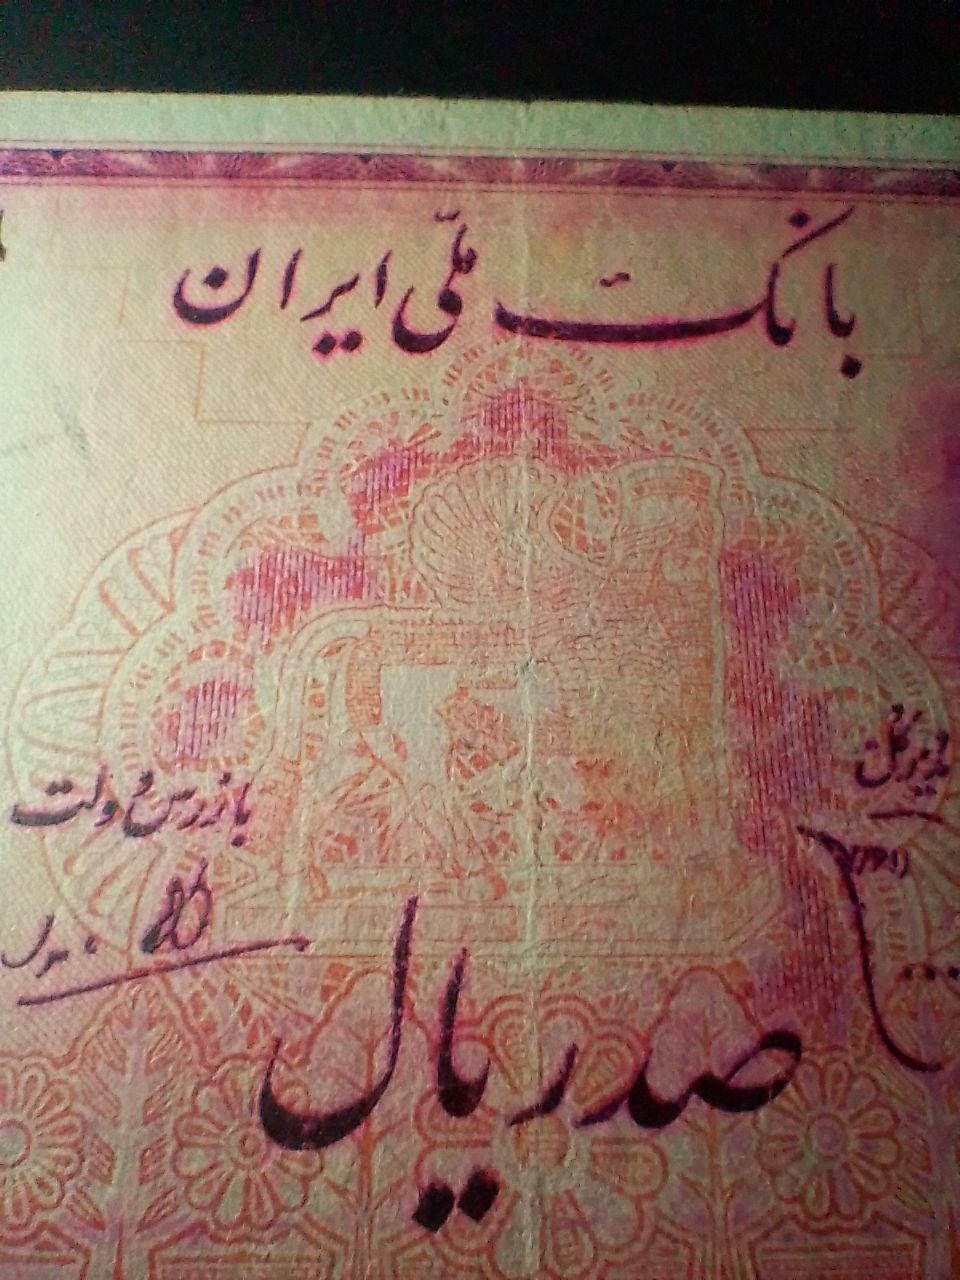 بانک ملّی ایران
مدیر کل
بازرس دولت
صد ریال